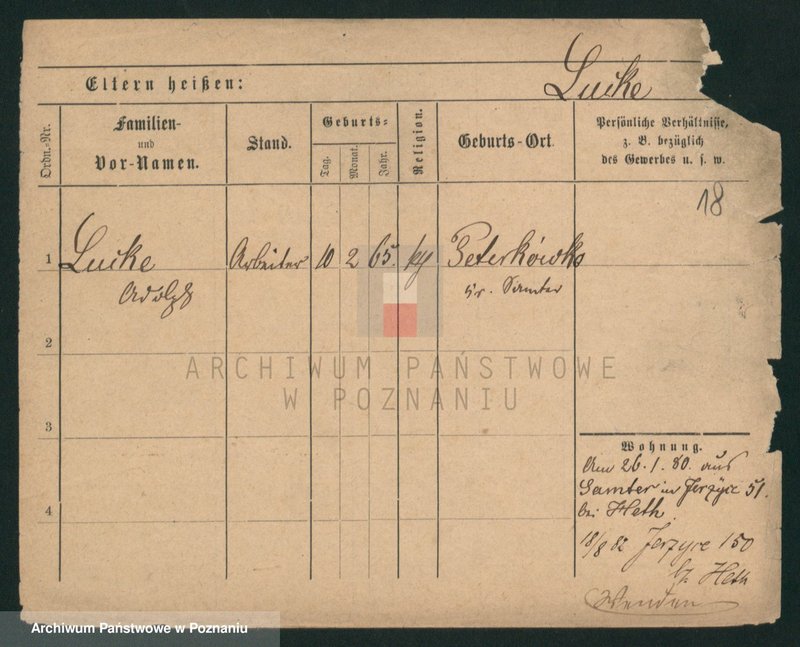 Eltern heißen:
Lucke
Ordn.-Nr.
Familien-
und
Vor-Namen.
Stand.
Geburts-
Tag.
Monat.
Jahr.
Religion.
Geburts-Ort.
Persönliche Verhältnisse,
z. B. bezüglich
des Gewerbes u. s. w.
18
1 Lucke Arbeiter 10 2 65. Peterkówko
Adolph Kr. Samter
2
ARCHIWUM PAŃSTWOWE
W POZNANIU
3
4
Wohnung.
Am 26.1.80. aus
Samter in Jerzyce 51.
bei Heth.
18/8 82 Jerzyce 150
bei Heth
Archiwum Państwowe w Poznaniu